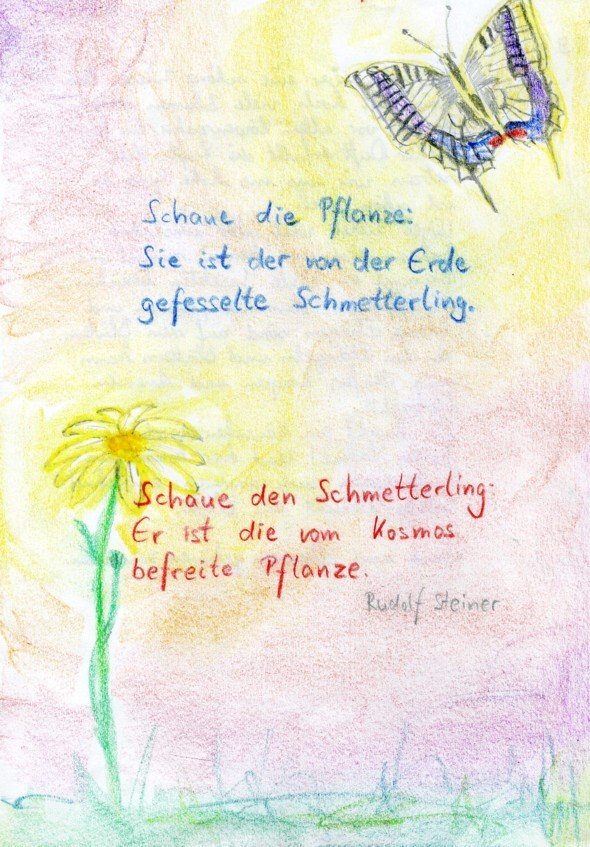 Schaue die Pflanze:
Sie ist der von der Erde
gefesselte Schmetterling.
Schaue den Schmetterling:
Er ist die vom Kosmos
befreite Pflanze.
Rudolf Steiner